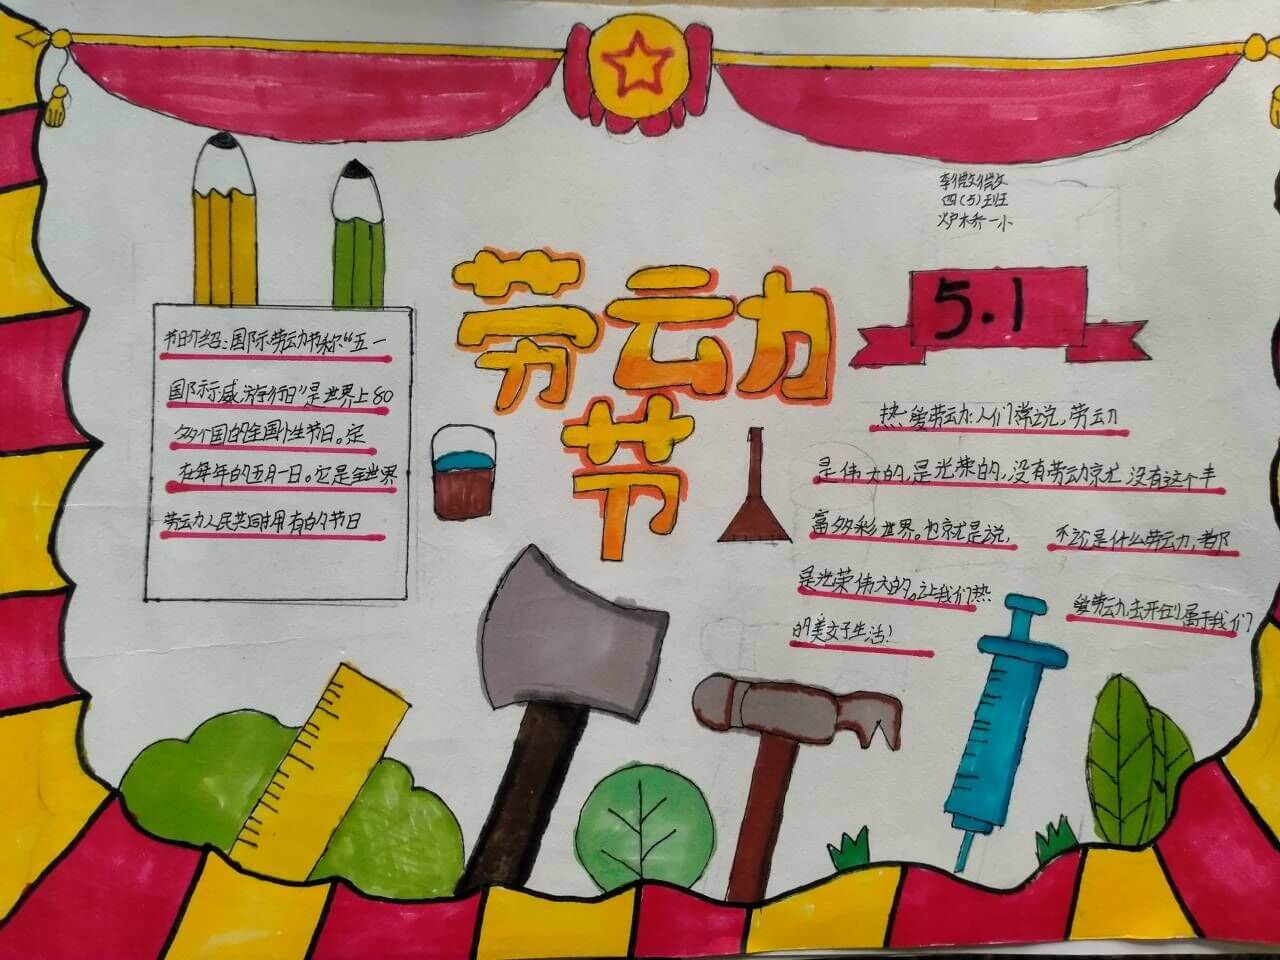 李微微
四(5)班
炉桥一小
劳动
节
5.1
节日介绍:国际劳动节称“五一
国际示威游行日”是世界上80
多个国的全国性节日。定
在每年的五月一日。它是全世界
劳动人民共同拥有的节日
热爱劳动:人们常说,劳动
是伟大的,是光荣的,没有劳动就 没有这个丰
富多彩世界。也就是说, 不论是什么劳动,都
是光荣伟大的。让我们热 爱劳动去开创属于我们
的美好生活!